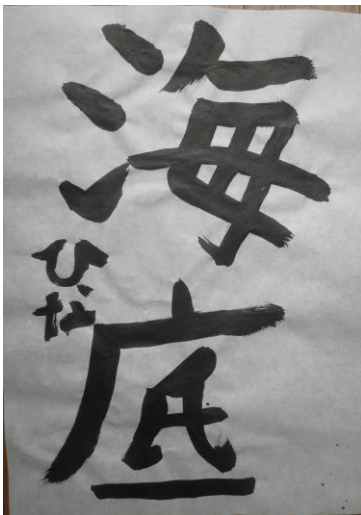 海底
ひな